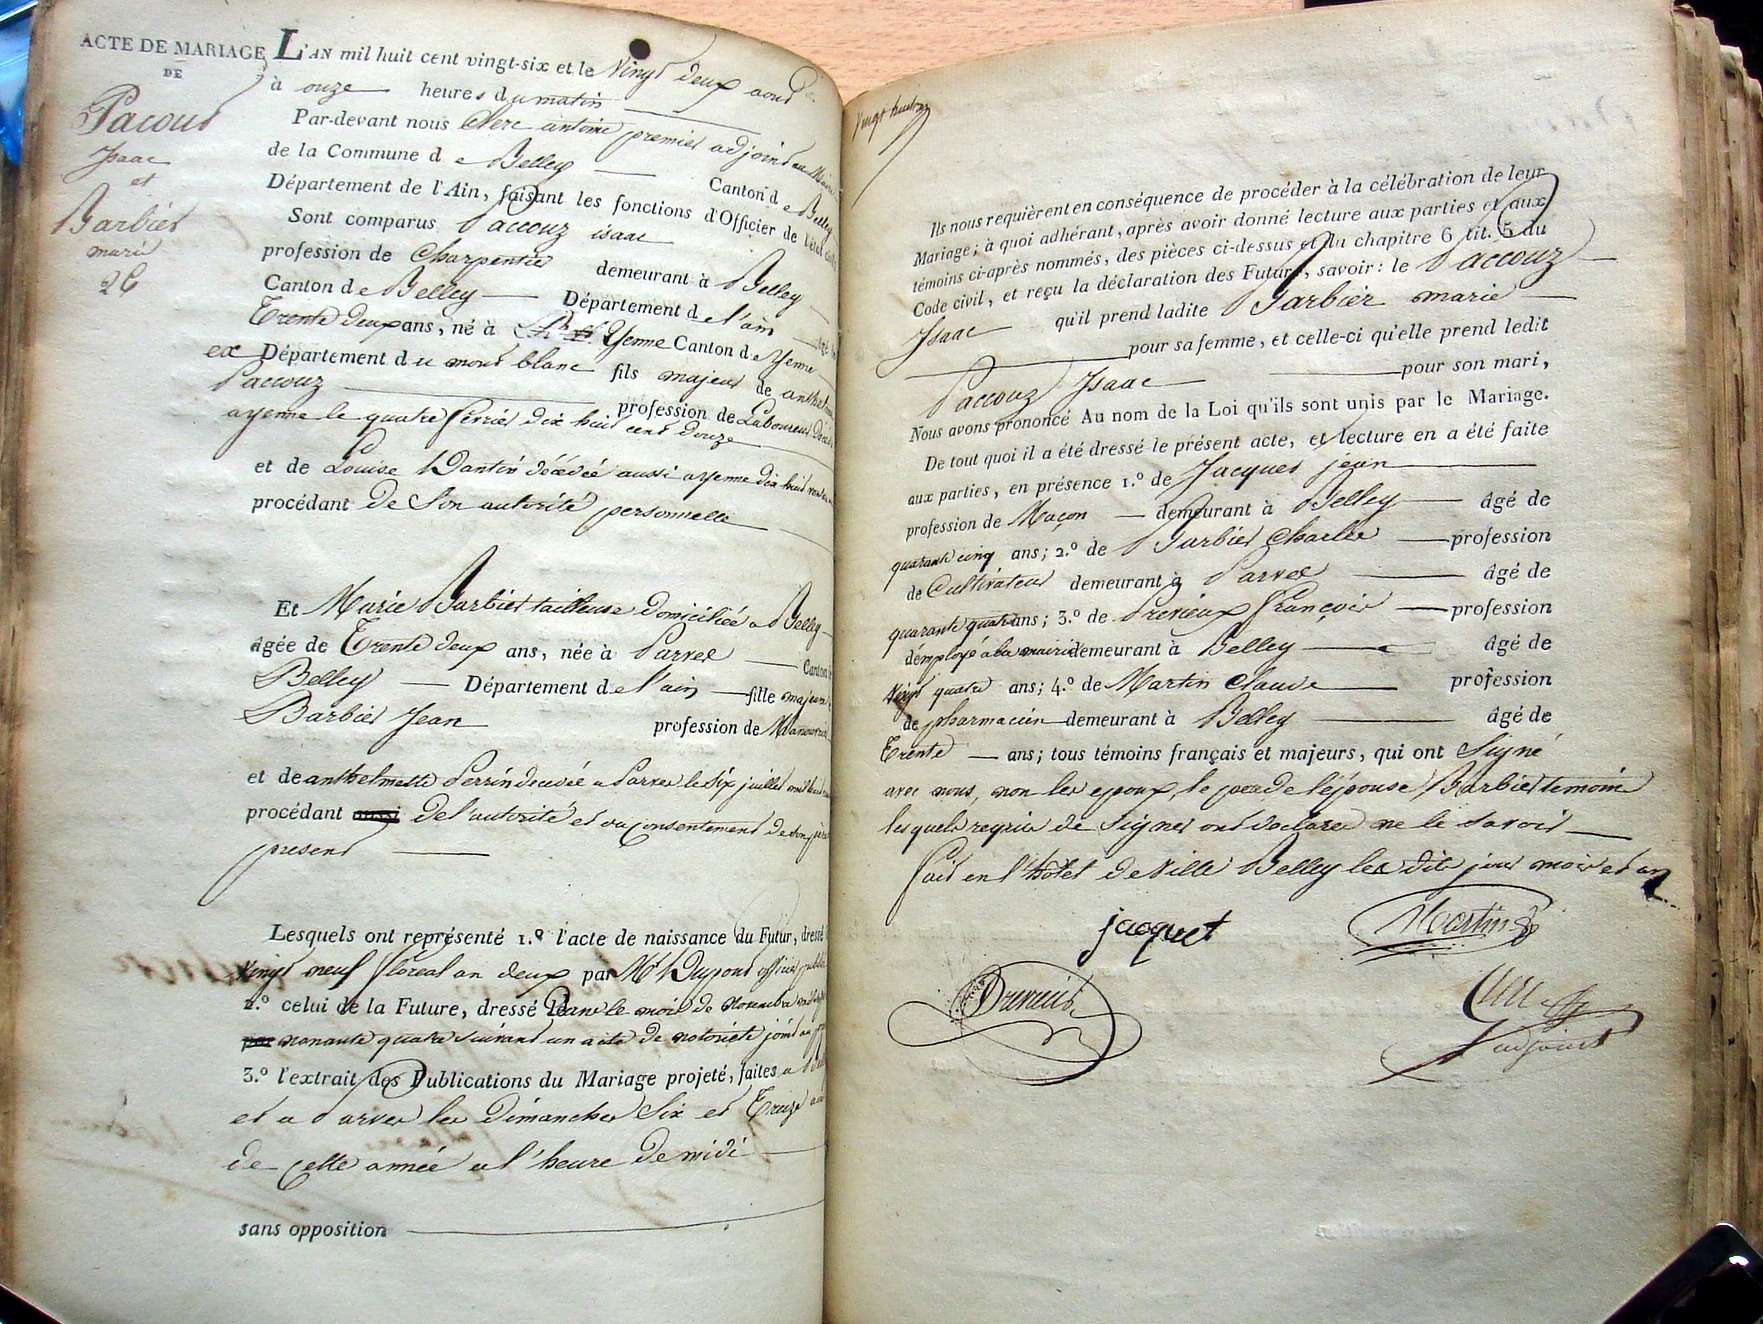 ACTE DE MARIAGE
DE
Pacout
Isaac
et
Barbier
marie
26
L'AN mil huit cent vingt-six et le Vingt deux aout
à onze heures du matin
Par-devant nous Clerc antoine premier adjoint au Maire
de la Commune de Belley Canton de Belley
Département de l'Ain, faisant les fonctions d'Officier de l'état civil
Sont comparus Paccouz isaac
profession de Charpentier demeurant à Belley
Canton de Belley Département de l'ain âgé de
Trente deux ans, né à Yenne Canton de Yenne
ex Département du mont blanc fils majeur de anthelme
Paccouz profession de Laboureur
a yenne le quatre fevrier dix huit cent douze
et de Louise Dantin décédée aussi a yenne dix huit cent
procédant de Son autorité personnelle
Et Marie Barbier tailleuse domiciliée a Belley
âgée de Trente deux ans, née à Parves Canton
Belley Département de l'ain fille majeure
Barbier Jean profession de
et de anthelmette Perrin décédée a Parves le Six juillet mil huit
procédant de l'autorité et du consentement de son père
present
Lesquels ont représenté 1.º l'acte de naissance du Futur, dressé
Vingt neuf floreal an deux par Mr Dupont officier public
2.º celui de la Future, dressé Dans le mois de Novembre
nonante quatre suivant un acte de notoriété joint au
3.º l'extrait des Publications du Mariage projeté, faites a
et a Parves les dimanches Six et Treize
de cette année a l'heure de midi
sans opposition
Vingt huit
Ils nous requièrent en conséquence de procéder à la célébration de leur
Mariage; à quoi adhérant, après avoir donné lecture aux parties et aux
témoins ci-après nommés, des pièces ci-dessus et du chapitre 6 tit. 5 du
Code civil, et reçu la déclaration des Futurs, savoir: le Paccouz
Isaac qu'il prend ladite Barbier marie
pour sa femme, et celle-ci qu'elle prend ledit
Paccouz Isaac pour son mari,
Nous avons prononcé Au nom de la Loi qu'ils sont unis par le Mariage.
De tout quoi il a été dressé le présent acte, et lecture en a été faite
aux parties, en présence 1.º de Jacques jean
profession de Maçon demeurant à Belley âgé de
quarante cinq ans; 2.º de Barbier Charles profession
de Cultivateur demeurant à Parves âgé de
quarante quatre ans; 3.º de Drevieux françois profession
d'employé à la mairie demeurant à Belley âgé de
vingt quatre ans; 4.º de Martin Claude profession
de pharmacien demeurant à Belley âgé de
Trente ans; tous témoins français et majeurs, qui ont Signé
avec nous, non les epoux, le pere de l'épouse Barbier temoin
lesquels requis de Signer ont declaré ne le savoir
fait en l'hotel de Ville Belley les dits jour mois et an
jacquet
Martin
adjoint